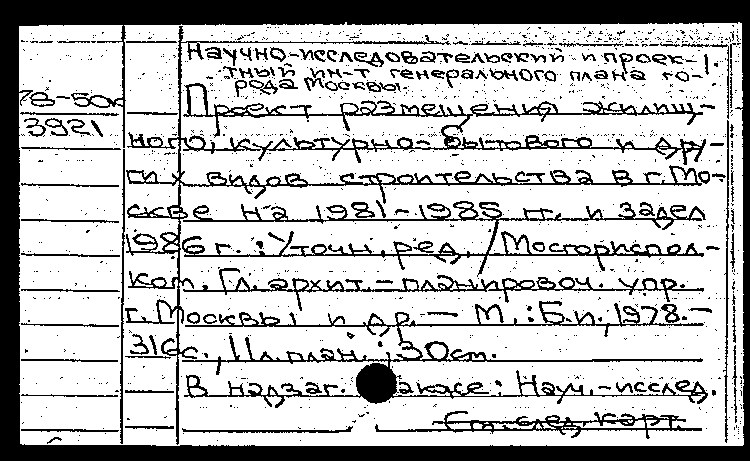 Научно-исследовательский и проек-1.
тный ин-т генерального плана го-
рода Москвы.
78-50к
Проект размещения жилищ-
3921
ного, культурно-бытового и дру-
гих видов строительства в г. Мо-
скве на 1981-1985 гг. и задел
1986 г.: Уточн. ред. / Мосгориспол-
ком. Гл. архит.-планировоч. упр.
г. Москвы и др. — М.: Б.и., 1978. —
316 с., Ил. план.; 30 см.
В надзаг. также: Науч.-исслед.
См. след. карт.